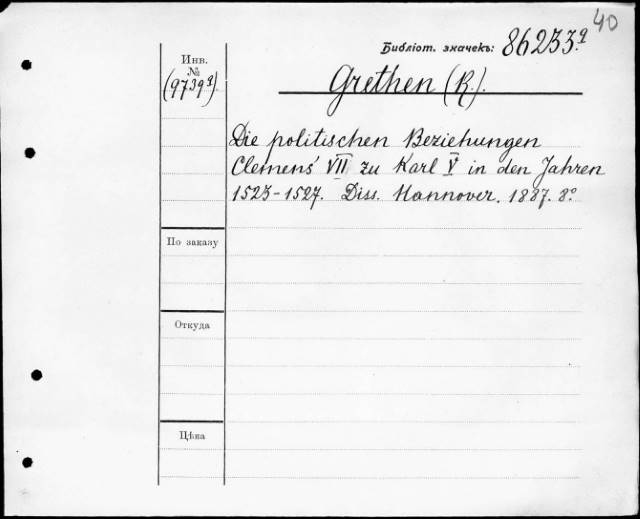 40
Библіот. значекъ: 86233.q
Инв.
№
(9739q)
Grethen (R.).
Die politischen Beziehungen
Clemens' VII zu Karl V in den Jahren
1523-1527. Diss. Hannover. 1887. 8°
По заказу
Откуда
Цѣна